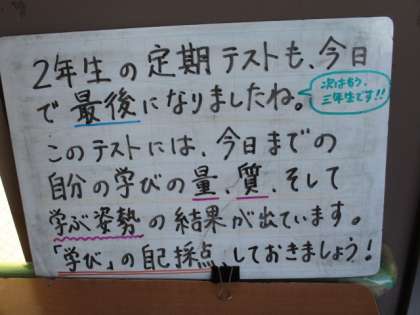 2年生の定期テストも、今日
で最後になりましたね。
次はもう、
三年生です!!
このテストには、今日までの
自分の学びの量、質、そして
学ぶ姿勢の結果が出ています。
「学び」の自己採点、しておきましょう!